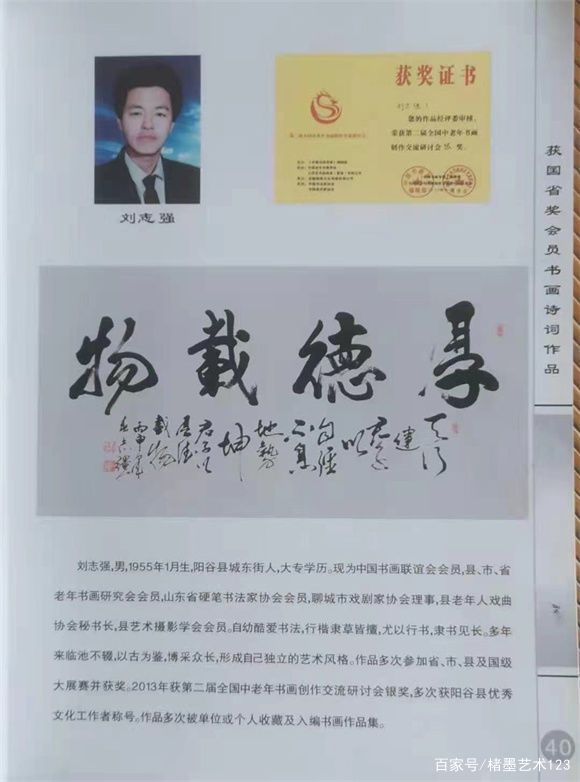 刘志强
获奖证书
您的作品经评委审核,
荣获第二届全国中老年书画
创作交流研讨会银奖。
获国省奖会员书画诗词作品
厚德载物
天行
健
君子
以
自强
不息
地势
坤
君子以
厚德
载物
刘志强,男,1955年1月生,阳谷县城东街人,大专学历。现为中国书画联谊会会员,县、市、省
老年书画研究会会员,山东省硬笔书法家协会会员,聊城市戏剧家协会理事,县老年人戏曲
协会秘书长,县艺术摄影学会会员。自幼酷爱书法,行楷隶草皆擅,尤以行书,隶书见长。多年
来临池不辍,以古为鉴,博采众长,形成自己独立的艺术风格。作品多次参加省、市、县及国级
大展赛并获奖。2013年获第二届全国中老年书画创作交流研讨会银奖,多次获阳谷县优秀
文化工作者称号。作品多次被单位或个人收藏及入编书画作品集。
40
百家号/楮墨艺术123